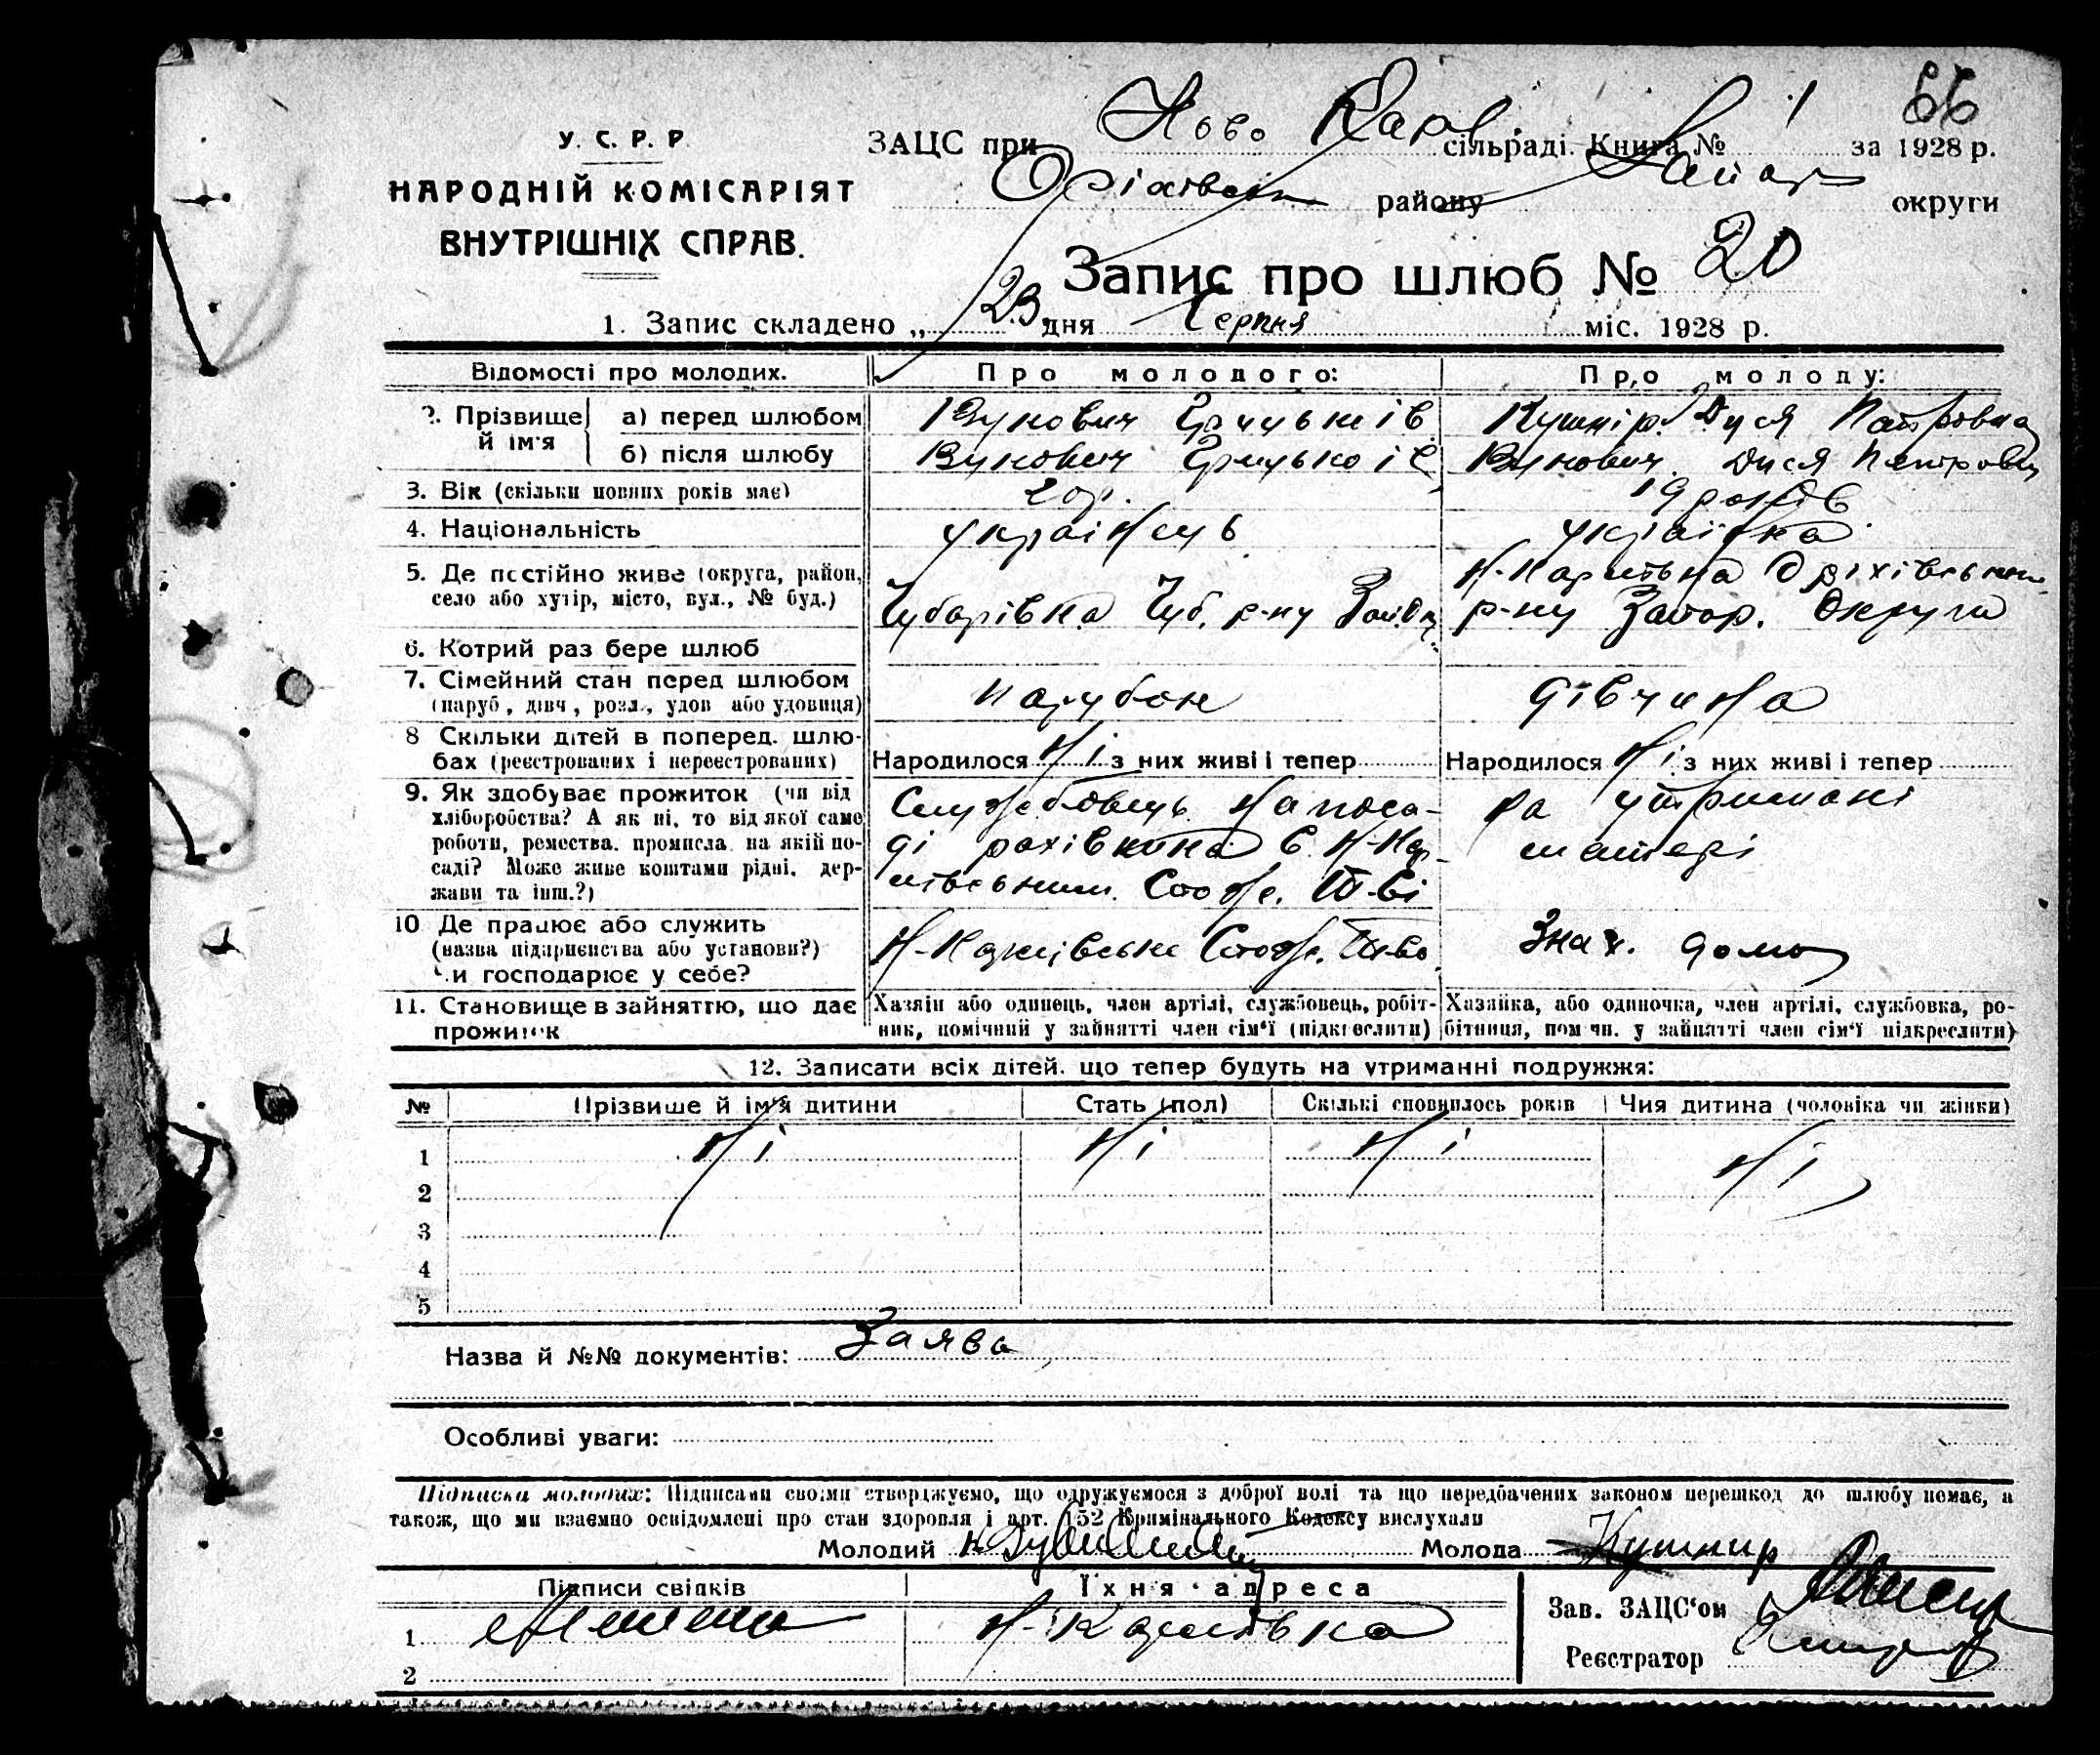 66
У. С. Р. Р
НАРОДНІЙ КОМІСАРІЯТ
ВНУТРІШНІХ СПРАВ.
ЗАЦС при Ново Карл. сільраді. Книга № 1 за 1928 р.
Оріхівськ району Запор округи
Запис про шлюб № 20
1. Запис складено „ 23 дня Серпня міс. 1928 р.
Відомості про молодих. Про молодого: Про молоду:
2. Прізвище й ім'я а) перед шлюбом Кушнір Дуся Петровна
б) після шлюбу Дуся Петровна
3. Вік (скільки повних років має) 19 років
4. Національність українець українка
5. Де постійно живе (округа, район,
село або хутір, місто, вул., № буд.)
Чубарівка Чуб. р-ну
Н-Карлівка Оріхівськ
р-ну Запор. Округи
6. Котрий раз бере шлюб
7. Сімейний стан перед шлюбом
(паруб, дівч, розл., удов або удовиця)
парубок дівчина
8 Скільки дітей в поперед. шлю-
бах (реєстрованих і нереєстрованих)
Народилося Ні з них живі і тепер Народилося Ні з них живі і тепер
9. Як здобуває прожиток (чи від
хліборобства? А як ні, то від якої саме
роботи, ремества, промисла на якій по-
саді? Може живе коштами рідні, дер-
жави та інш.?)
Службовець на поса-
ді рахівника в Н-Кар-
лівським Спож. Т-ві
на утримані
матері
10 Де працює або служить
(назва підприємства або установи?)
Чи господарює у себе?
Н-Карлівське Спож. Т-во Знах. дома
11. Становище в зайняттю, що дає
прожиток
Хазяїн або одинець, член артілі, службовець, робіт-
ник, помічний у зайнятті член сім'ї (підкреслити)
Хазяйка, або одиночка, член артілі, службовка, ро-
бітниця, помічн. у зайнятті член сім'ї підкреслити)
12. Записати всіх дітей, що тепер будуть на утриманні подружжя:
№ Прізвище й ім'я дитини Стать (пол) Скількі сповнилось років Чия дитина (чоловіка чи жінки)
1 Ні Ні Ні Ні
2
3
4
5
Назва й №№ документів: Заява
Особливі уваги:
Підписка молодих: Підписами своїми стверджуємо, що одружуємося з доброї волі та що передбачених законом перешкод до шлюбу немає, а
також, що ми взаємно освідомлені про стан здоровля і арт. 152 Кримінального Кодексу вислухали
Молодий Молода Кушнир
Підписи свідків Їхня адреса
1 Н-Карлівка
2
Зав. ЗАЦС'ом
Реєстратор